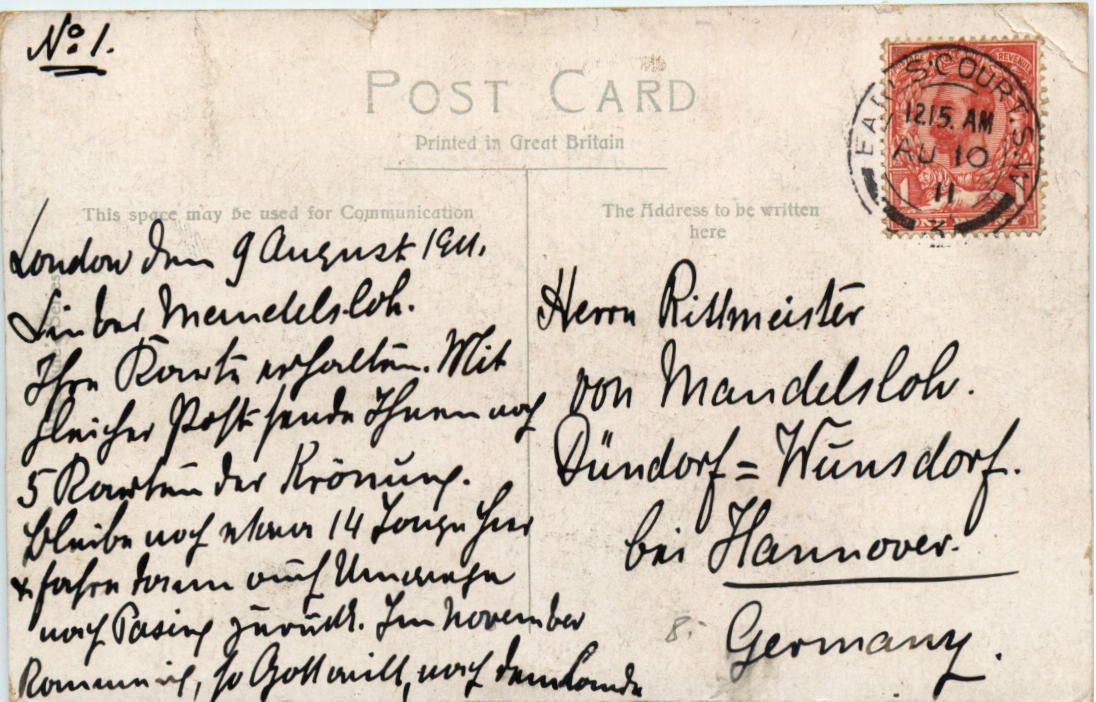 No 1.
POST CARD
Printed in Great Britain
This space may be used for Communication
The Address to be written
here
EARL'S COURT. S.W.
12 15. AM
AU 10
11
London den 9 August 1911.
Lieber Mandelsloh.
Ihre Karte erhalten. Mit
gleicher Post sende Ihnen noch
5 Karten der Krönung.
Bleibe noch etwa 14 Tage hier
& fahre dann auf Umwege
nach Pasing zurück. Im November
komme ich, so Gott will, nach dem Lande
Herrn Rittmeister
von Mandelsloh.
Dündorf = Wunsdorf.
bei Hannover.
Germany.
8.-